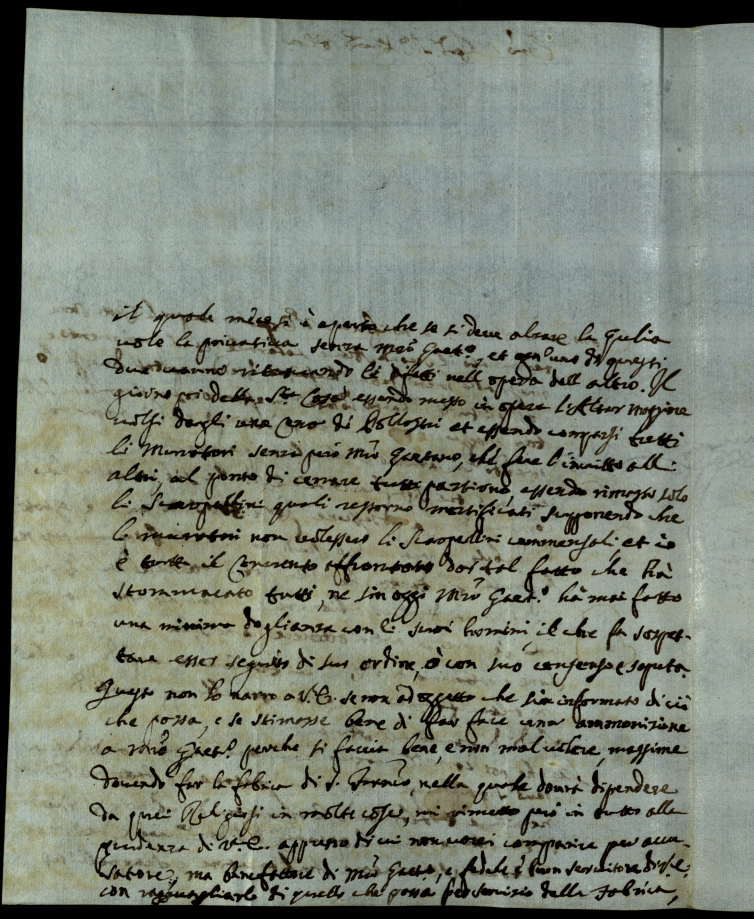 il quale meco si è aperto che se si deve alzare la Guglia
vole la privativa senza Mro Gaet.o, et ogn'uno di questi
due vanno ritrovando li difetti nell'opera dell'altro. Il
giorno poi della Sta Casa essendo messo in opera l'Altar Maggiore
volsi dargli una Cena di et essendo comparsi tutti
li Muratori senza però Mro Gaetano, che fece l'invitto alli
altri, al ponto di cenare tutti partirono, essendo rimasto solo
li Scarpellini quali restorno mortificati supponendo che
li muratori non volessero li Scarpellini commensali, et io
e tutto il Convento affrontato dos tal fatto che hà
stommacato tutti, ne sin oggi Mro Gaet.o hà mai fatto
una minima doglianza con li suoi homini, il che fa sospet-
tare esser seguito di suo ordine, ò con suo consenso e saputa.
Questo non lo narro a V.E. se non ad oggetto che sia informato di ciò
che passa, e se stimasse bene di far fare una ammonizione
a Mro Gaet.o perche si faccia bene, e non mal volere, massime
dovendo far la fabrica di S. nella quale dovrà dipendere
da quei Religiosi in molte cose, mi rimetto però in tutto alla
prudenza di V.E. appresso di cui non vorei comparire per accu-
satore, ma benefattore di Mro Gaet.o, e fedele e buon servitore di V.E.
con ragguagliarlo di quello che passa per servizio della Fabrica,